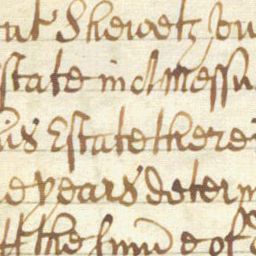 Sheweth
state in messu
his Estate there
years determ
the sum e of